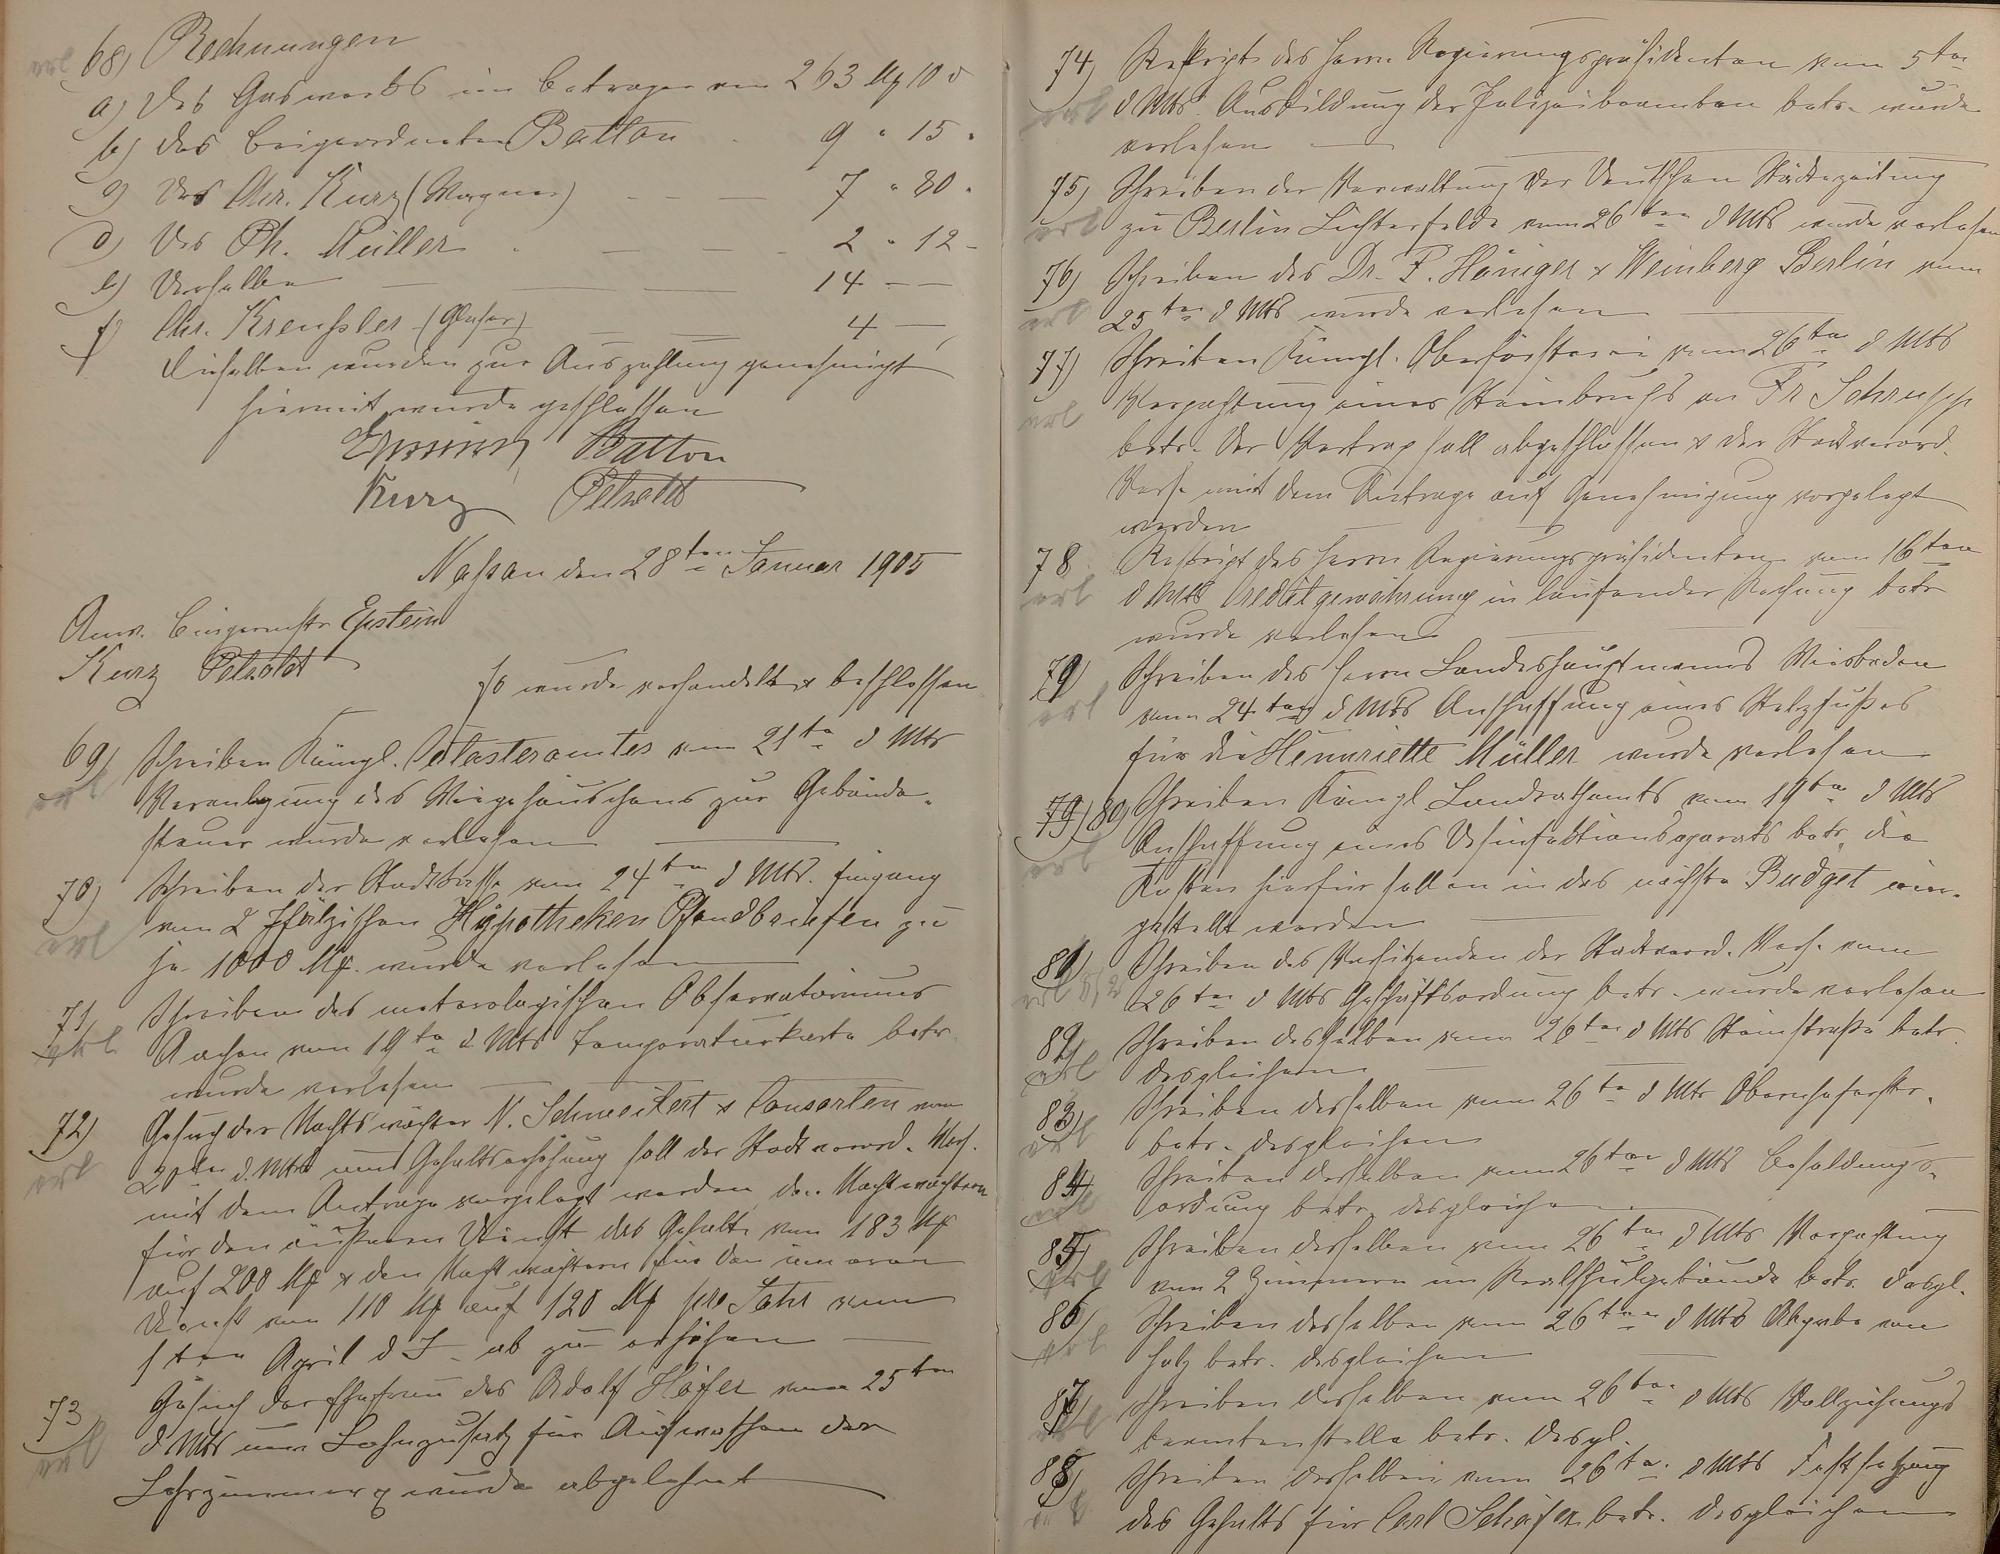 68) Rechnungen
erl
a) des Gaswerks im Betrage von 263 M 10 d
b) des Beigeordneten Batton - 9 " 15 "
c) des Chr. Kurz (Wagner) - - - 7 " 80 "
d) des Ph. Müller - - - 2 " 12 -
e) Derselbe - - - 14 - -
f) Chr. Kreußler (Glaser) - - 4 -
Dieselben wurden zur Auszahlung genehmigt
Hiermit wurde geschlossen
Batton
Kurz Petzoldt
Naßau den 28ten Januar 1905
Anw. Bürgermstr Epstein
Kurz Petzoldt
Es wurde verhandelt & beschlossen
69) Schreiben Königl. Katasteramtes vom 21ten d Mts
erl
Veranlagung des Wiegehäuschens zur Gebäude-
steuer wurde verlesen
70) Schreiben der Stadtkasse vom 24ten d Mts. Eingang
erl
von 2 Pfälzischen Hypotheken Pfandbriefen zu
je 1000 M. wurde verlesen
71 Schreiben des meteorologischen Observatoriums
erl
Aachen vom 19ten d Mts Temperaturkarte betr.
wurde verlesen
72) Gesuch der Nachtwächter N. Schweikert & Consorten vom
erl
20ten d. Mts um Gehaltserhöhung soll der Stadtverord. Vers.
mit dem Antrage vorgelegt werden den Nachtwächtern
für den äußeren Dienst das Gehalt von 183 M
auf 200 M & den Nachtwächtern für den inneren
Dienst von 110 M auf 120 M pro Jahr vom
1ten April d J. ab zu erhöhen
73 Gesuch der Ehefrau des Adolf Höfer vom 25ten
erl
d Mts um Lohnzusatz für Aufwaschen der
Lehrzimmer wurde abgelehnt
74) Reskript des Herrn Regierungspräsidenten vom 5ten
erl
d Mts. Ausbildung der Polizeibeamten betr. wurde
verlesen
75) Schreiben der Verwaltung der Deutschen Städtezeitung
erl
zu Berlin Lichterfelde vom 26ten d Mts wurde verlesen
76) Schreiben des Dr. F. Höniger & Weinberg Berlin vom
erl
25ten d Mts wurde verlesen
77) Schreiben Königl. Oberförsterei vom 26ten d Mts
erl
Verpachtung eines Steinbruchs an Fr Schrupp
betr. Der Vertrag soll abgeschlossen & der Stadtverord.
Vers. mit dem Antrage auf Genehmigung vorgelegt
werden
78 Reskript des Herrn Regierungspräsidenten vom 16ten
erl
d Mts Creditgewährung in laufender Rechnung betr
wurde verlesen
79) Schreiben des Herrn Landeshauptmanns Wiesbaden
erl
vom 24ten d Mts Anschaffung eines Stelzfußes
für die Henriette Müller wurde verlesen
79) 80) Schreiben Königl Landrathsamts vom 19ten d Mts
erl
Anschaffung eines Desinfektionsaparats betr. die
Kosten hierfür sollen in das nächste Budget ein-
gestellt werden
81) Schreiben des Vorsitzenden der Stadtverord. Vers. vom
erl
26ten d Mts Geschäftsordnung betr. wurde verlesen
82) Schreiben desselben vom 26ten d Mts Steinstraße betr.
erl
desgleichen
83) Schreiben desselben vom 26ten d Mts
erl
betr. desgleichen
84) Schreiben desselben vom 26ten d Mts Besoldungs-
erl
ordnung betr. desgleichen
85) Schreiben desselben vom 26ten d Mts Verpachtung
erl
von 2 Zimmern im Realschulgebäude betr. desgl.
86) Schreiben desselben vom 26ten d Mts Abgabe von
erl
Holz betr. desgleichen
87) Schreiben desselben vom 26ten d Mts Vollziehungs
erl
beamtenstelle betr. desgl.
88) Schreiben desselben vom 26ten d Mts Festsetzung
erl
des Gehalts für Carl Schäfer betr. desgleichen